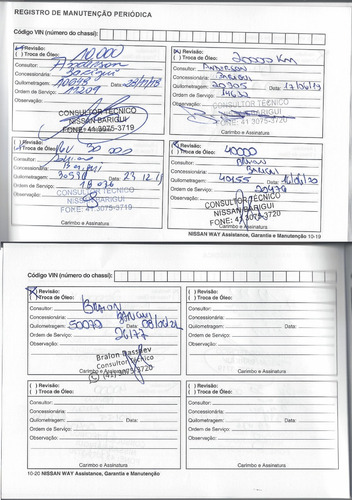 REGISTRO DE MANUTENÇÃO PERIÓDICA
Código VIN (número do chassi):
Revisão: 10.000
( ) Troca de Óleo:
Consultor: Anderson
Concessionária: Barigui
Quilometragem: Data:
Ordem de Serviço:
Observação:
CONSULTOR TÉCNICO
NISSAN BARIGUI
FONE: 41.3075-3719
Carimbo e Assinatura
Revisão: 20000 Km
( ) Troca de Óleo:
Consultor: Anderson
Concessionária: Barigui
Quilometragem: 20305 Data: 17/06/19
Ordem de Serviço: 14632
Observação:
CONSULTOR TÉCNICO
NISSAN BARIGUI
FONE: 41.3075-3719
Carimbo e Assinatura
( ) Revisão: Rev 30 000
( ) Troca de Óleo:
Consultor:
Concessionária: Barigui
Quilometragem: Data: 23 12 19
Ordem de Serviço:
Observação:
CONSULTOR TÉCNICO
NISSAN BARIGUI
FONE: 41.3075-3719
Carimbo e Assinatura
Revisão: 40000
( ) Troca de Óleo:
Consultor:
Concessionária: Barigui
Quilometragem: 40155 Data:
Ordem de Serviço: 20474
Observação:
CONSULTOR TÉCNICO
NISSAN BARIGUI
FONE: 41.3075-3720
Carimbo e Assinatura
NISSAN WAY Assistance, Garantia e Manutenção 10-19
Código VIN (número do chassi):
Revisão:
( ) Troca de Óleo:
Consultor: Braion
Concessionária: Barigui
Quilometragem: 50070 Data:
Ordem de Serviço: 26177
Observação:
Consultor Técnico
Carimbo e Assinatura
( ) Revisão:
( ) Troca de Óleo:
Consultor:
Concessionária:
Quilometragem: Data:
Ordem de Serviço:
Observação:
Carimbo e Assinatura
( ) Revisão:
( ) Troca de Óleo:
Consultor:
Concessionária:
Quilometragem: Data:
Ordem de Serviço:
Observação:
Carimbo e Assinatura
( ) Revisão:
( ) Troca de Óleo:
Consultor:
Concessionária:
Quilometragem: Data:
Ordem de Serviço:
Observação:
Carimbo e Assinatura
10-20 NISSAN WAY Assistance, Garantia e Manutenção